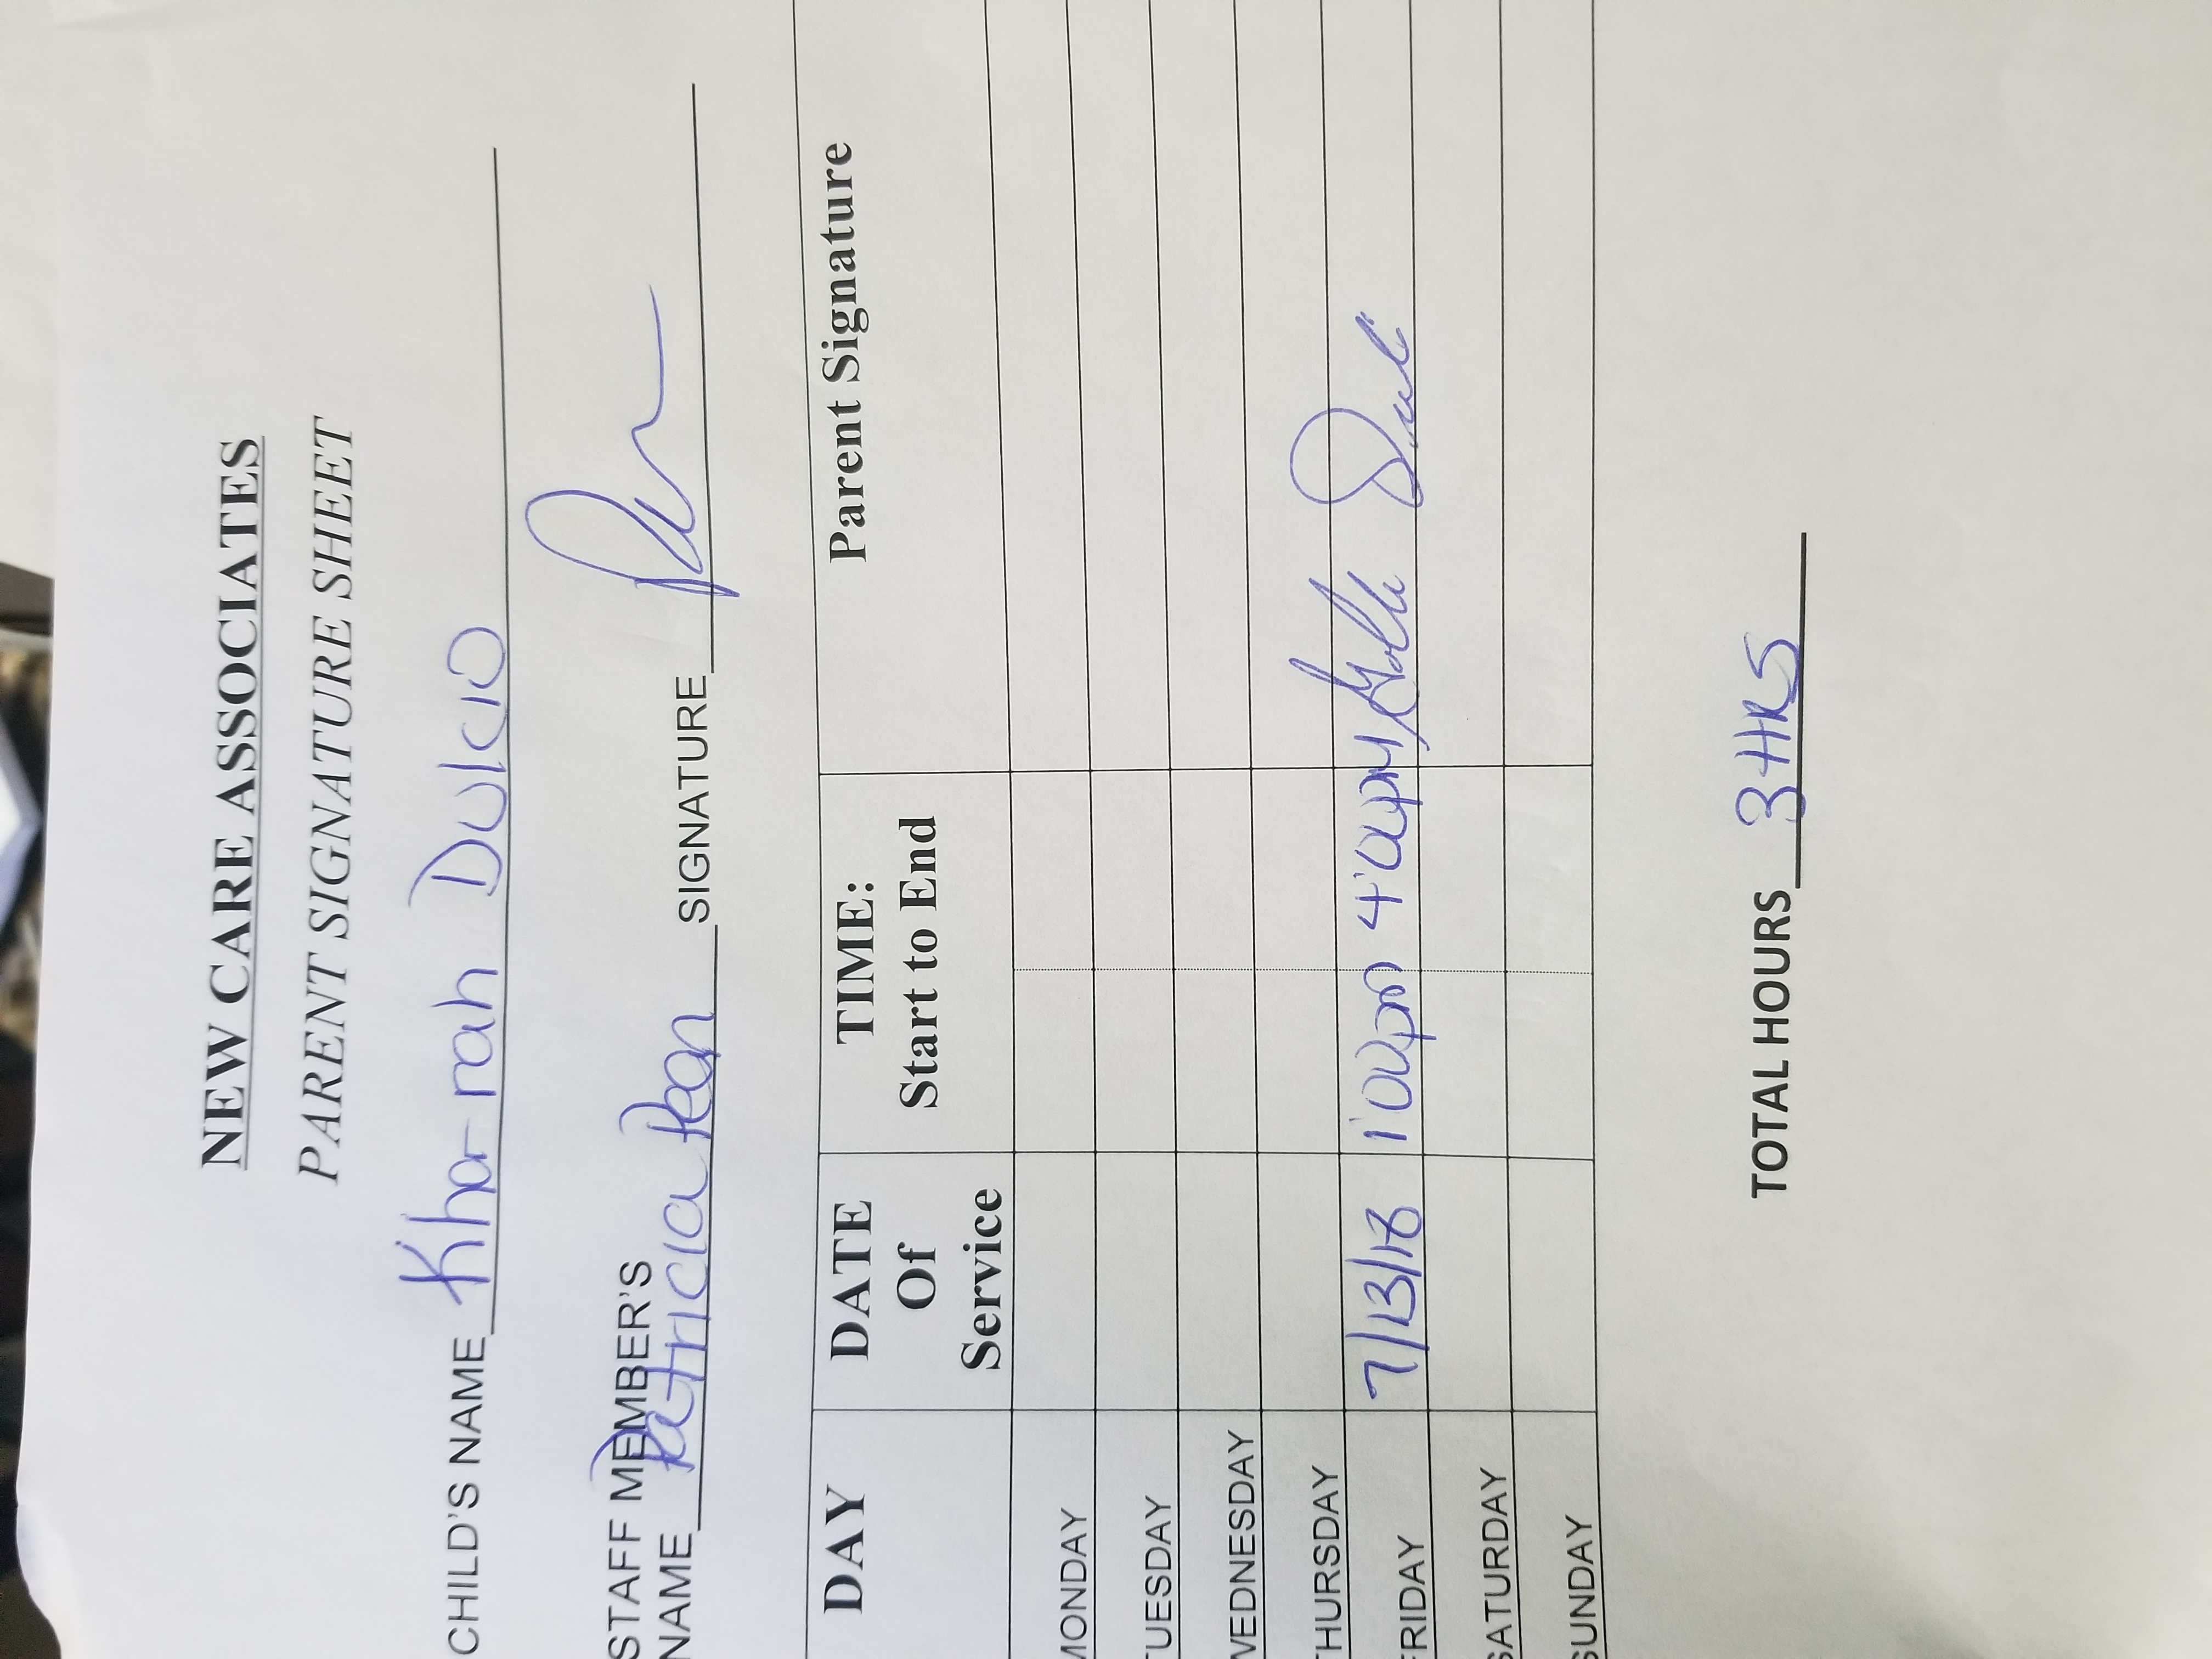 NEW CARE ASSOCIATES
PARENT SIGNATURE SHEET
CHILD'S NAME Kha-rah Dulcio
STAFF MEMBER'S
NAME Patricia Pean SIGNATURE
DAY DATE Of Service TIME: Start to End Parent Signature
MONDAY
TUESDAY
WEDNESDAY
THURSDAY
FRIDAY 7/13/18 1:00pm 4:00pM
SATURDAY
SUNDAY
TOTAL HOURS 3 HRS